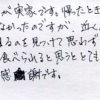 が実感です。帰ったとき
なかったのですが、近く
るのを見つけて思わず
食べられると思うととても
感謝です。